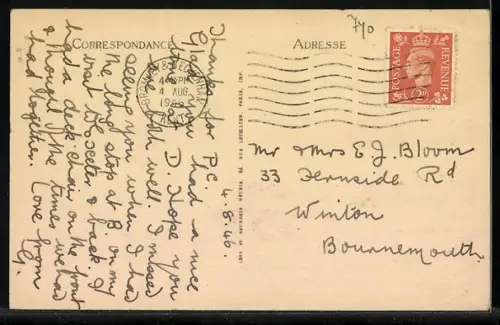 740
CORRESPONDANCE
ADRESSE
POSTAGE
REVENUE
4 AUG
1946
Thanks for P.C. 4.8.46.
Glad you had a nice
time at D. Hope you
are both well. I missed
seeing you when I had
the long stop at B on my
visit to Exeter & back. I
had a deck chair on the front
& thought of the times we had
had together. Love from
G.
Mr & Mrs E J. Bloom
33 Fernside Rd
Winton
Bournemouth.